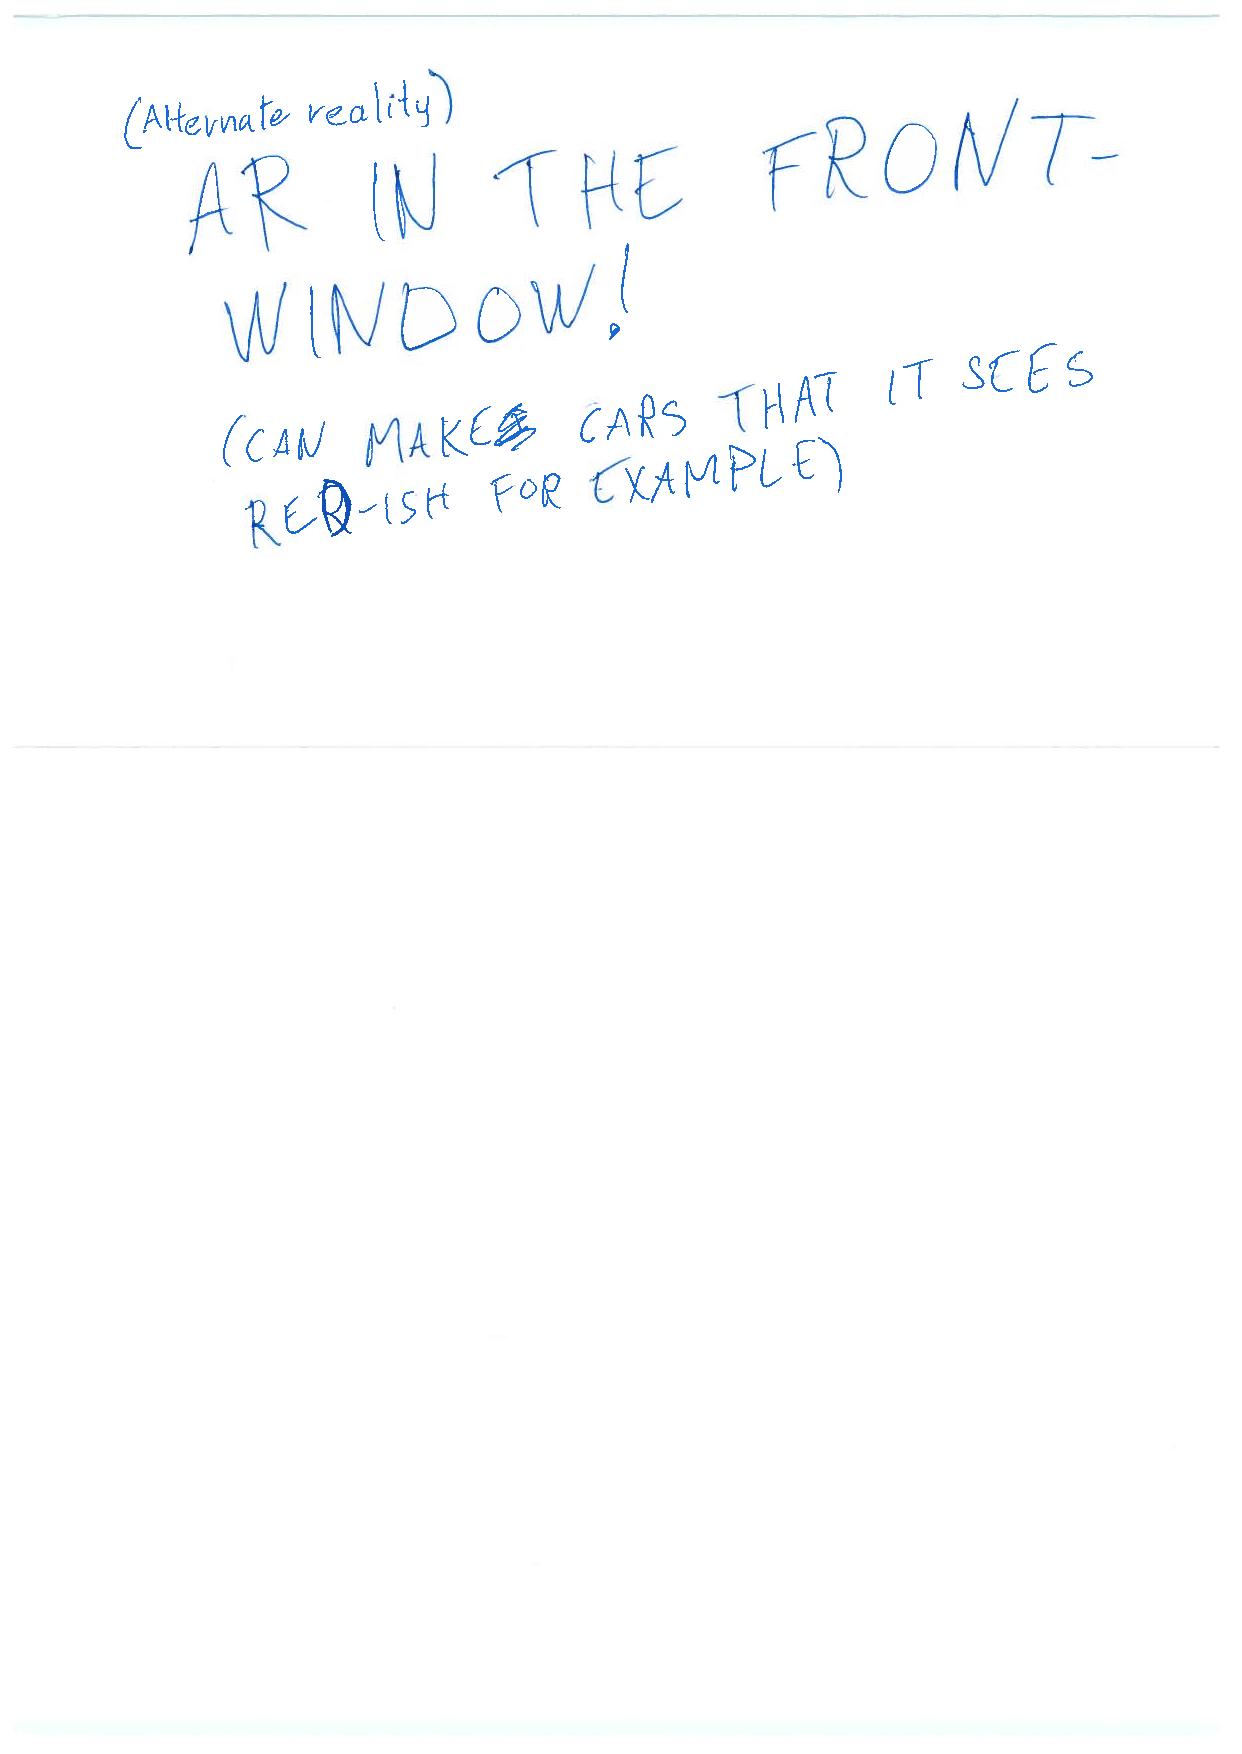 (Alternate reality)
AR IN THE FRONT-
WINDOW!
(CAN MAKE CARS THAT IT SEES
RED-ISH FOR EXAMPLE)